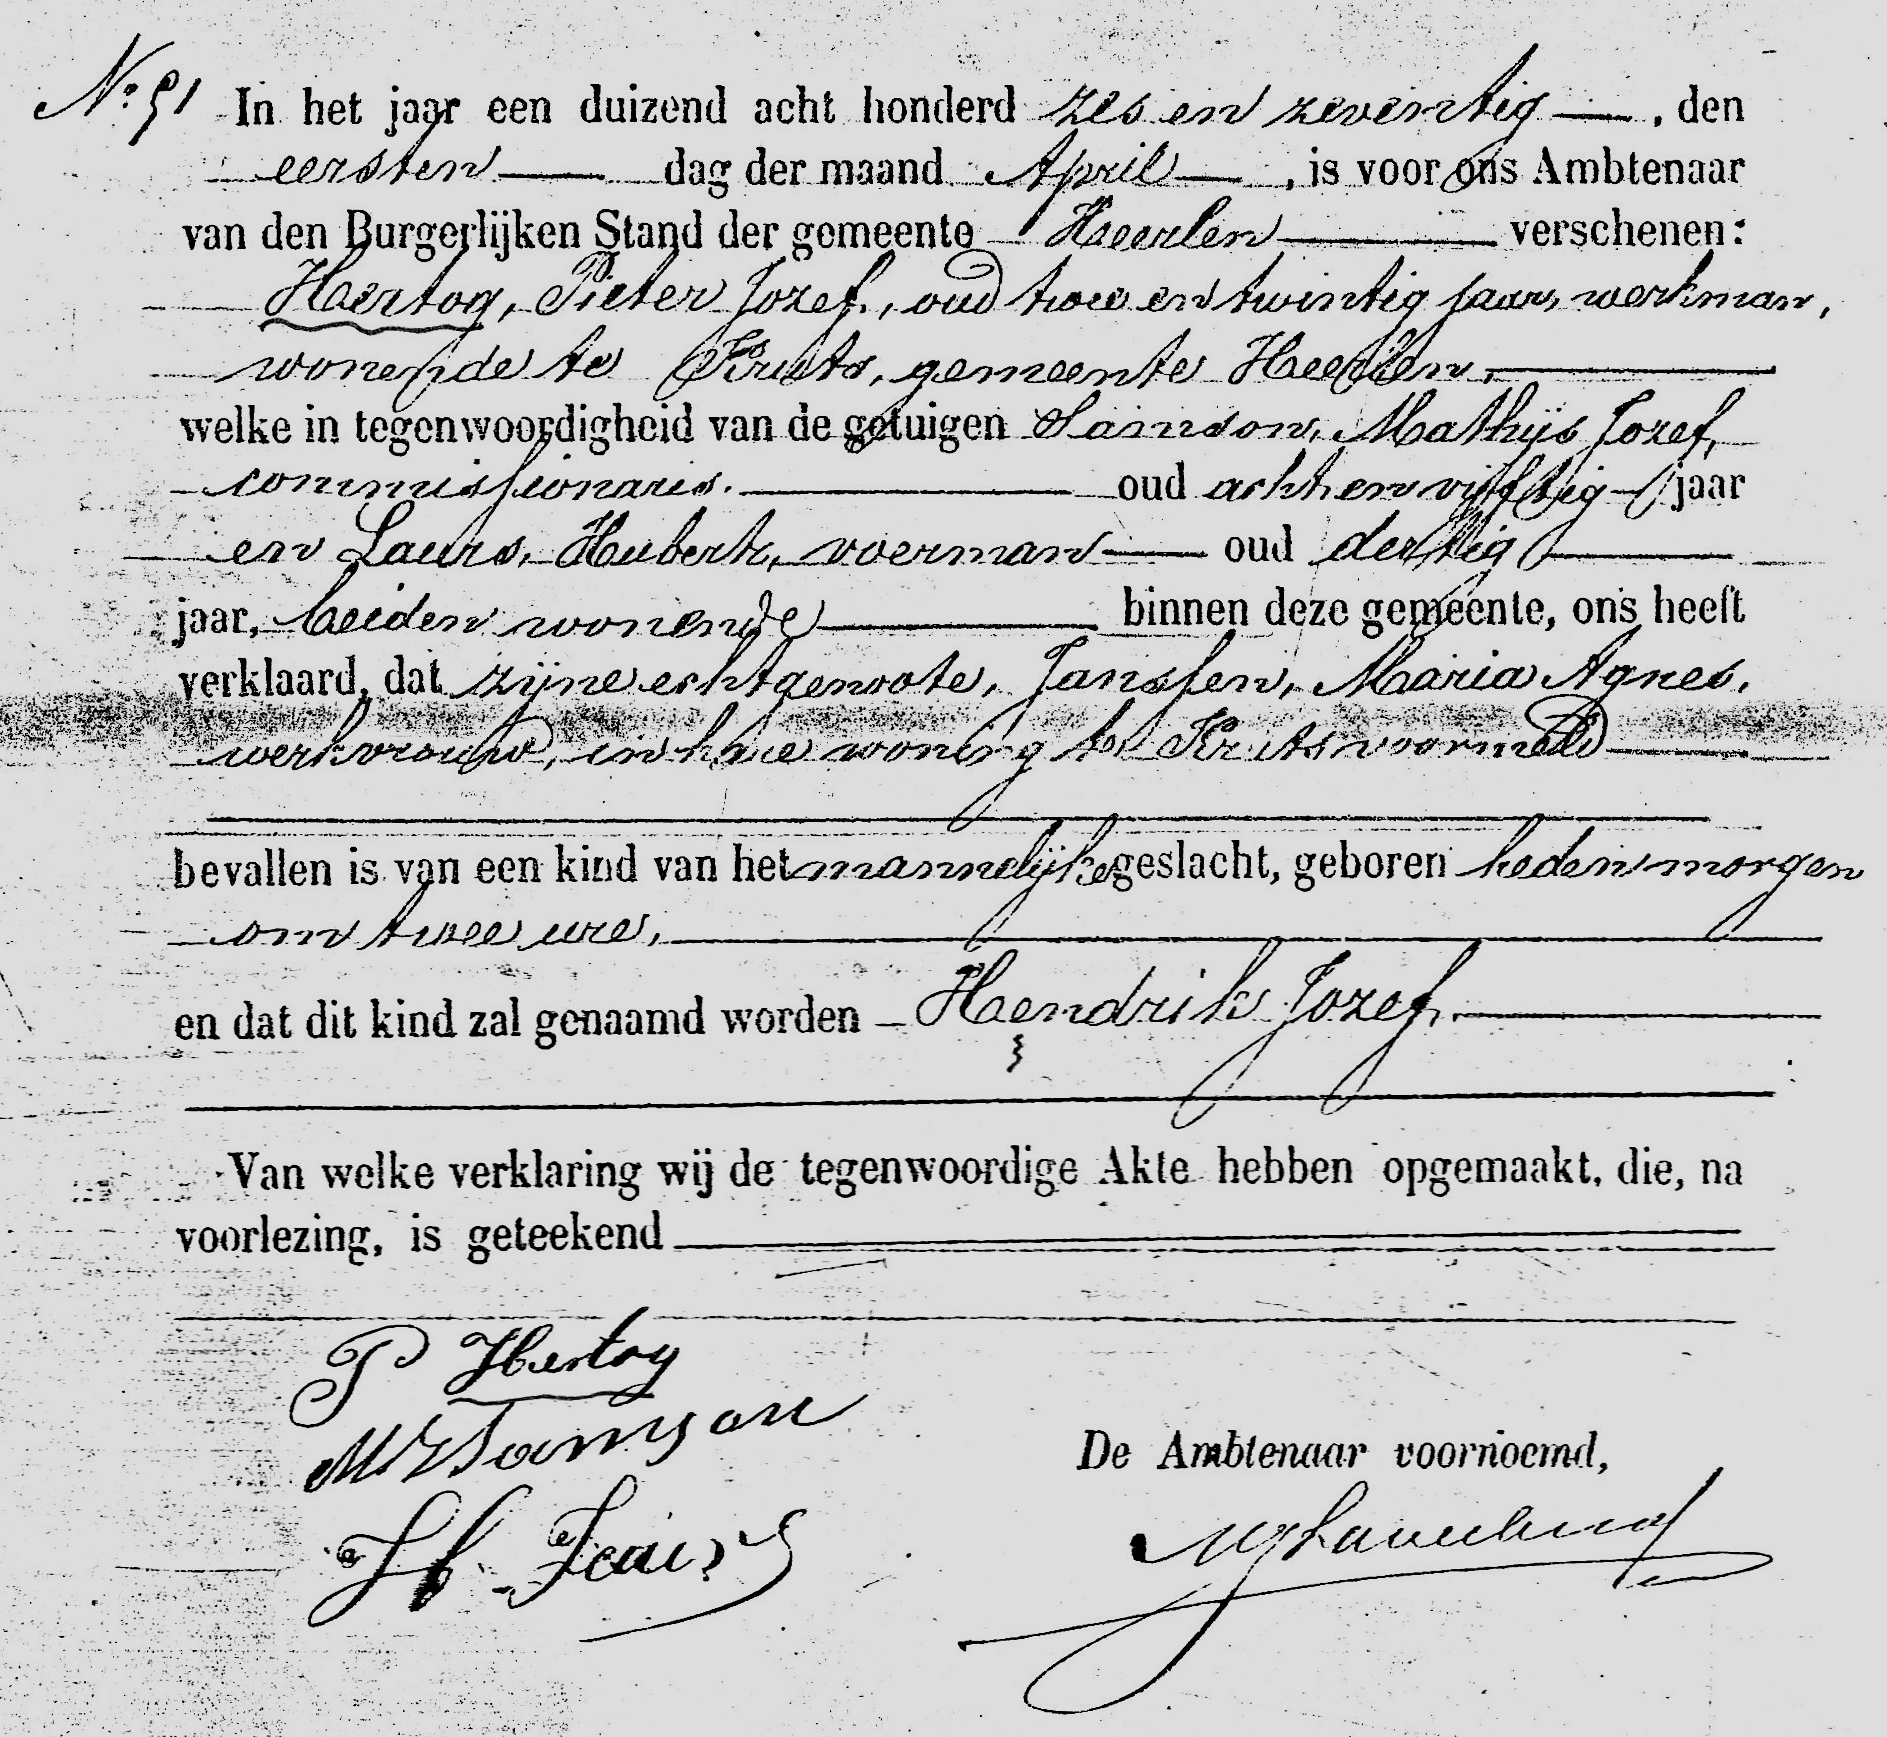 No 51 In het jaar een duizend acht honderd zes en zeventig, den
eersten dag der maand April, is voor ons Ambtenaar
van den Burgerlijken Stand der gemeente Heerlen verschenen:
Hertog, Pieter Jozef, oud twee en twintig jaar, werkman,
wonende te Kruts, gemeente Heerlen,
welke in tegenwoordigheid van de getuigen Samson, Mathijs Jozef,
commissionaris. oud acht en vijftig jaar
en Laurs, Hubert, voerman oud dertig
jaar, beiden wonende binnen deze gemeente, ons heeft
verklaard, dat zijne echtgenoote, Janssen, Maria Agnes,
werkvrouw, in hare woning te Kruts voormeld
bevallen is van een kind van het mannelijke geslacht, geboren heden morgen
om twee ure,
en dat dit kind zal genaamd worden Hendrik Jozef.
Van welke verklaring wij de tegenwoordige Akte hebben opgemaakt, die, na
voorlezing, is geteekend
P Hertog
MJ Samson
De Ambtenaar voornoemd,
H. Laurs